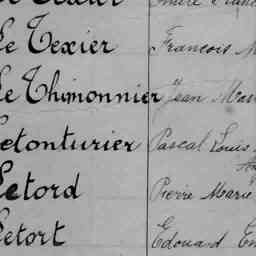 Le Texier François M
Le Thimonnier Jean Mar
Letonturier Pascal Louis
Letord Pierre Marie
Letort Edouard